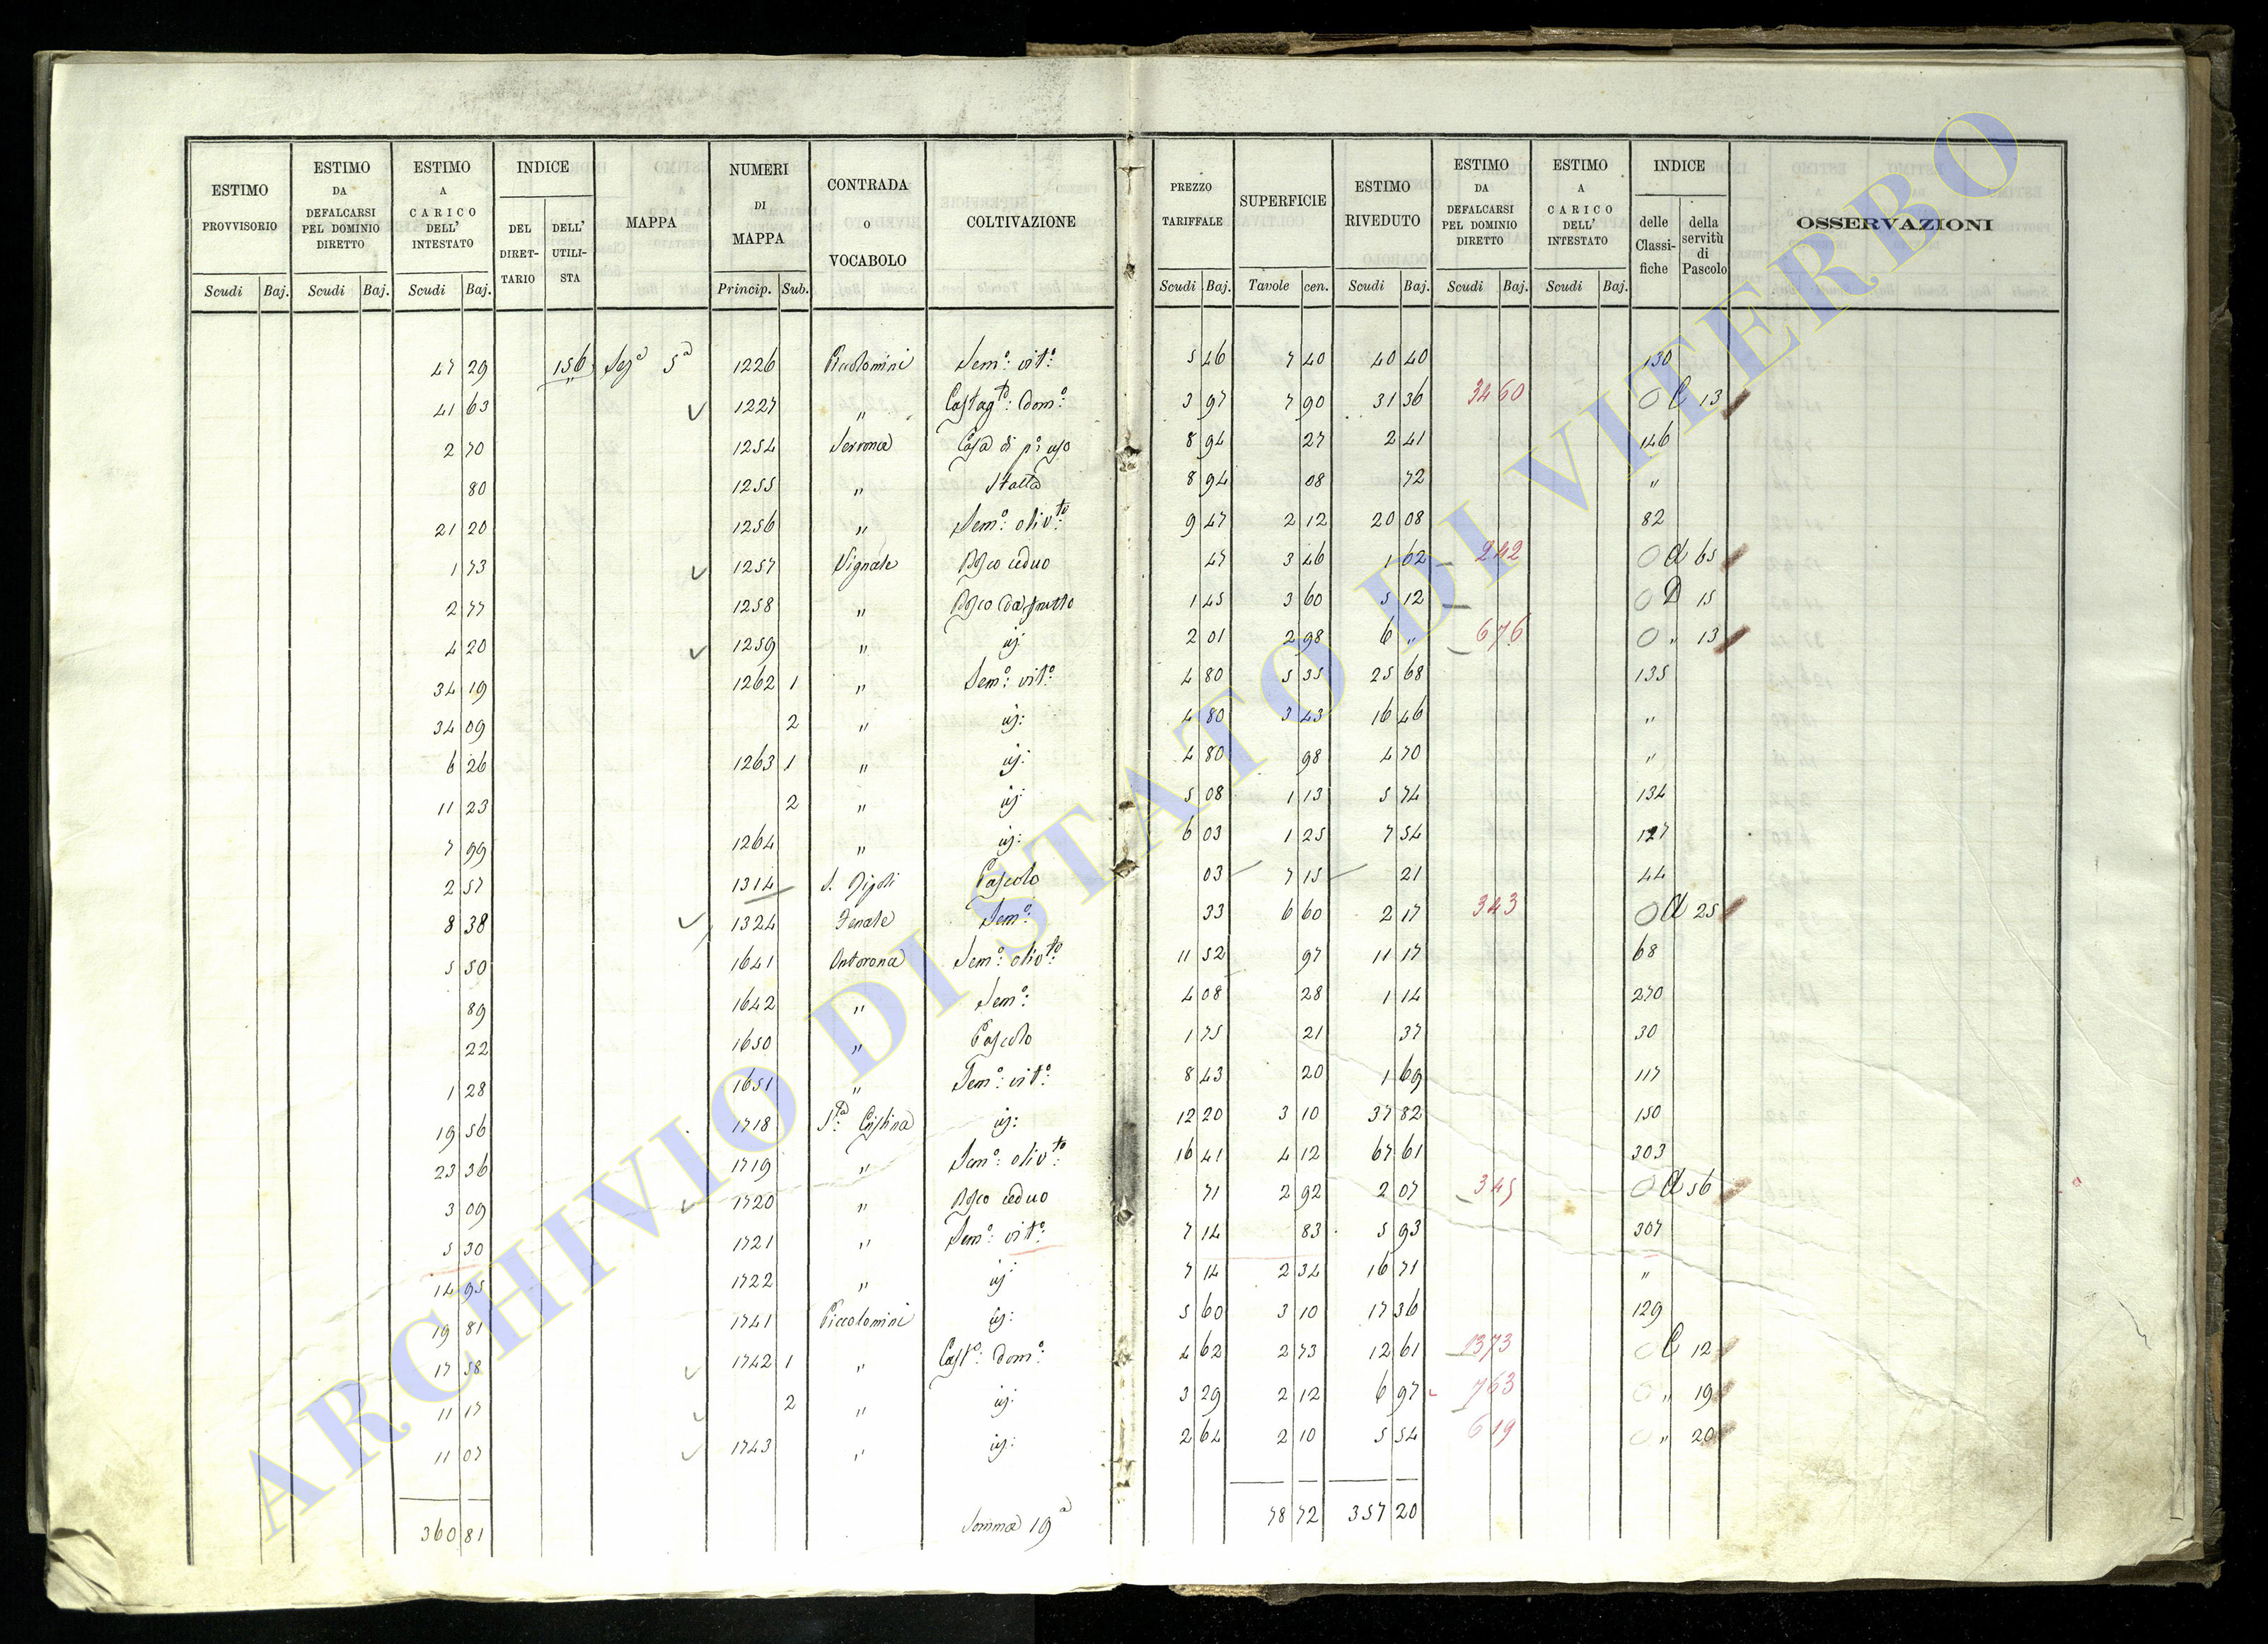 ESTIMO PROVVISORIO | ESTIMO DA DEFALCARSI PEL DOMINIO DIRETTO | ESTIMO A CARICO DELL' INTESTATO | INDICE | MAPPA | NUMERI DI MAPPA | CONTRADA O VOCABOLO | COLTIVAZIONE | PREZZO TARIFFALE | SUPERFICIE | ESTIMO RIVEDUTO | ESTIMO DA DEFALCARSI PEL DOMINIO DIRETTO | ESTIMO A CARICO DELL' INTESTATO | INDICE | OSSERVAZIONI
DEL DIRET-TARIO | DELL' UTILI-STA | delle Classi-fiche | della servitù di Pascolo
Scudi | Baj. | Scudi | Baj. | Scudi | Baj. | Princip. | Sub. | Scudi | Baj. | Tavole | cen. | Scudi | Baj. | Scudi | Baj. | Scudi | Baj.
47 29 | 156 | Sez.a 5a | 1226 | Piccolomini | Sem.o: vit.o: | 5 46 | 7 40 | 40 40 | 130
41 63 | 1227 | " | Castag.to: Dom.o: | 3 97 | 7 90 | 31 36 | 34 60 | C 13
2 70 | 1254 | Serrona | Casa di p.o: uso | 8 94 | 27 | 2 41 | 146
80 | 1255 | " | Stalla | 8 94 | 08 | 72 | "
21 20 | 1256 | " | Sem.o: oliv.to: | 9 47 | 2 12 | 20 08 | 82
1 73 | 1257 | Vignale | Bosco ceduo | 47 | 3 46 | 1 62 | 2 42 | a 65
2 77 | 1258 | " | Bosco da frutto | 1 45 | 3 60 | 5 12 | D 15
4 20 | 1259 | " | id: | 2 01 | 2 98 | 6 " | 6 76 | " 13
34 19 | 1262 1 | " | Sem.o: vit.o: | 4 80 | 5 35 | 25 68 | 135
34 09 | 2 | " | id: | 4 80 | 3 43 | 16 46 | "
6 26 | 1263 1 | " | id: | 4 80 | 98 | 4 70 | "
11 23 | 2 | " | id: | 5 08 | 1 13 | 5 74 | 134
7 99 | 1264 | " | id: | 6 03 | 1 25 | 7 54 | 127
2 57 | 1314 | Pascolo | 03 | 7 15 | 21 | 44
8 38 | 1324 | Fenale | Sem.o: | 33 | 6 60 | 2 17 | 3 43 | a 25
5 50 | 1641 | Antorona | Sem.o: oliv.to: | 11 52 | 97 | 11 17 | 68
89 | 1642 | " | Sem.o: | 4 08 | 28 | 1 14 | 270
22 | 1650 | " | Pascolo | 1 75 | 21 | 37 | 30
1 28 | 1651 | " | Sem.o: vit.o: | 8 43 | 20 | 1 69 | 117
19 56 | 1718 | S.ta: Cristina | id: | 12 20 | 3 10 | 37 82 | 150
23 36 | 1719 | " | Sem.o: oliv.to: | 16 41 | 4 12 | 67 61 | 303
3 09 | 1720 | " | Bosco ceduo | 71 | 2 92 | 2 07 | 3 45 | a 56
5 30 | 1721 | " | Sem.o: vit.o: | 7 14 | 83 | 5 93 | 307
14 95 | 1722 | " | id: | 7 14 | 2 34 | 16 71 | "
19 81 | 1741 | Piccolomini | id: | 5 60 | 3 10 | 17 36 | 129
17 58 | 1742 1 | " | Cast.o: Dom.o: | 4 62 | 2 73 | 12 61 | 13 73 | C 12
11 17 | 2 | " | id: | 3 29 | 2 12 | 6 97 | 7 63 | " 19
11 07 | 1743 | " | id: | 2 64 | 2 10 | 5 54 | 6 19 | " 20
360 81 | Somma 19a | 78 72 | 357 20
ARCHIVIO DI STATO DI VITERBO